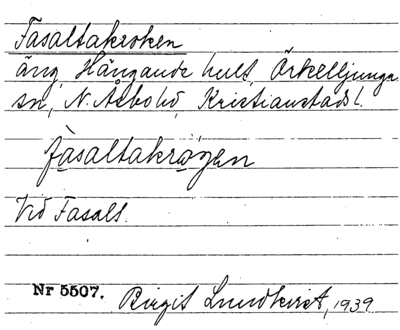 Fasaltakroken
äng, Hångande hult, Örkelljunga
sn, N. Åsbohd, Kristianstads l.
fasaltakrågen
Vid Fasalt.
Nr 5507. Birgit Lundkvist, 1939